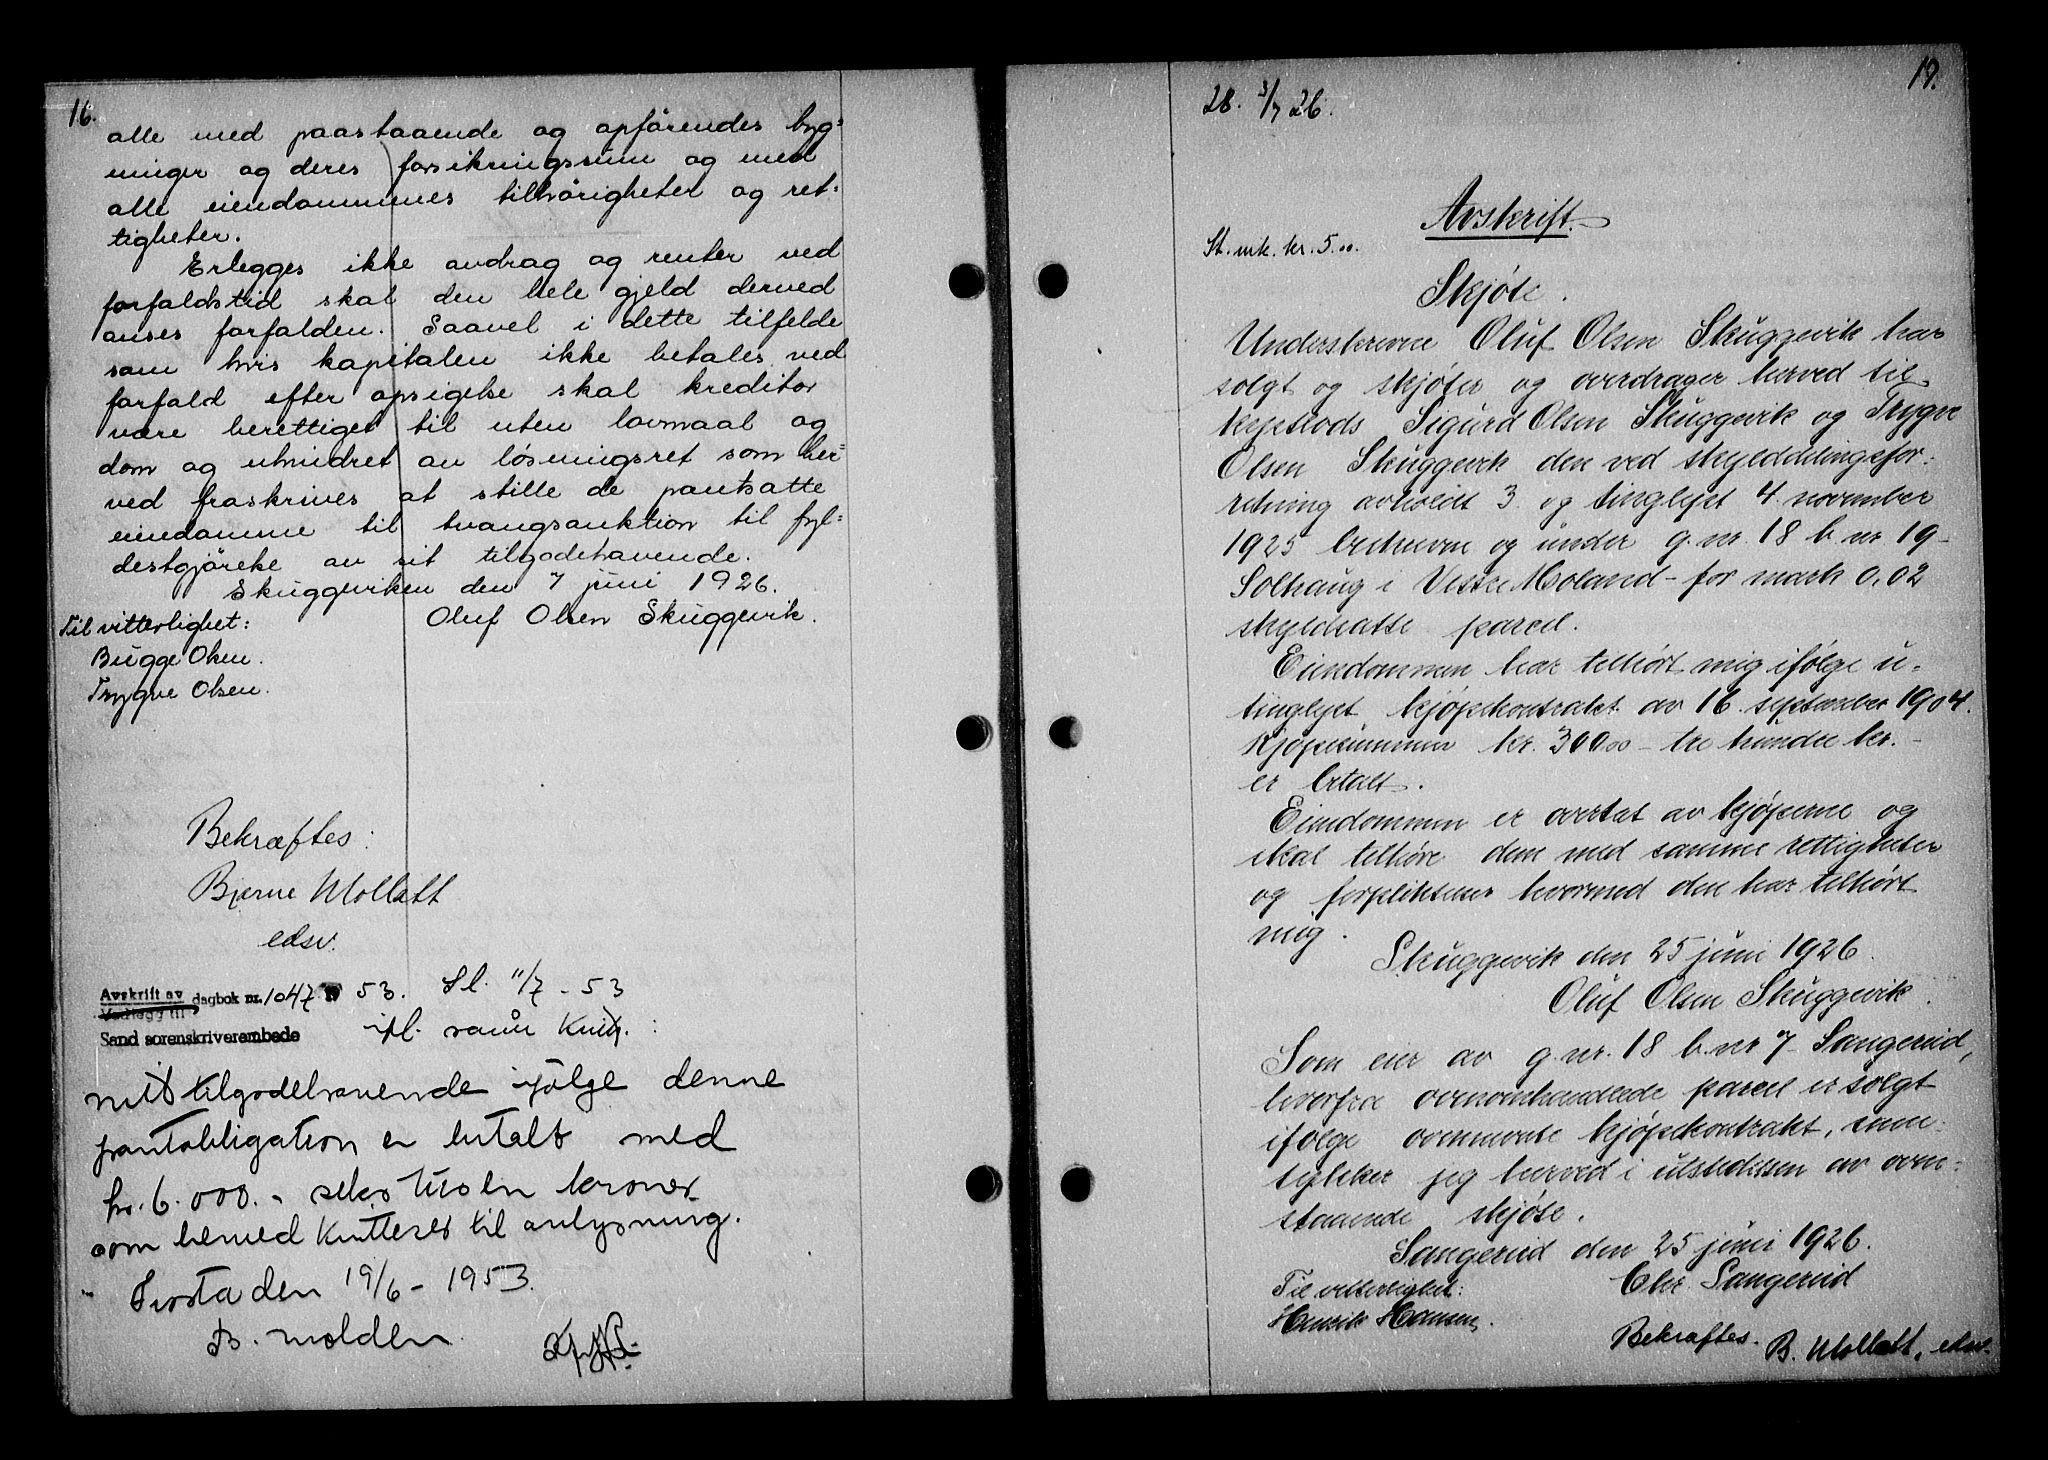 16.
alle med paastaaende og opførendes byg-
ninger og deres forsikringssum og med
alle eiendommenes tilhørigheter og ret-
tigheter.
Erlegges ikke avdrag og renter ved
forfaldstid skal den hele gjeld derved
anses forfalden. Saavel i dette tilfelde
som hvis kapitalen ikke betales ved
forfald efter opsigelse skal kreditor
være berettiget til uten lovmaal og
dom og uhindret av løsningsret som her-
ved fraskrives at stille de pantsatte
eiendomme til tvangsauktion til fyl-
destgjørelse av sit tilgodehavende.
Skuggeviken den 7 juni 1926.
Til vitterlighet: Oluf Olsen Skuggevik.
Bugge Olsen.
Trygve Olsen.
Bekræftes:
Bjarne Mollatt
edsv.
Avskrift av dagbok nr. 1047 53. Sl. 11/7 - 53
Vedlegg til
Sand sorenskriverembede ifl. sånn Knitt. :
mitt tilgodehavende ifølge denne
pantobligation er betalt med
kr. 6.000.- seks tusen kroner
som herved kvitteres til avlysning.
den 19/6 - 1953.
B. Molden
19.
28. 3/7 26.
Avskrift.
St. mk. kr. 5.00.
Skjøte.
Underskrevne Oluf Olsen Skuggevik har
solgt og skjøter og overdrager herved til
kystlods Sigurd Olsen Skuggevik og Trygve
Olsen Skuggevik den ved skylddelingsfor-
retning avholdt 3. og tinglyst 4. november
1925 beskrevne og under g.nr. 18 b.nr. 19 -
Solhaug i Vestre Moland - for mark 0,02
skyldsatte parcel.
Eiendommen har tilhørt mig ifølge u-
tinglyst kjøpekontrakt av 16. september 1904.
Kjøpesummen kr. 300.00 - tre hundre kr. -
er betalt.
Eiendommen er overtat av kjøperne og
skal tilhøre dem med samme rettigheter
og forpliktelser hvormed den har tilhørt
mig.
Skuggevik den 25 juni 1926.
Oluf Olsen Skuggevik.
Som eier av g.nr. 18 b.nr 7 Sangereid,
hvorfra ovenomhandlede parcel er solgt
ifølge ovennevnte kjøpekontrakt, sam-
tykker jeg herved i utstedelsen av oven-
staaende skjøte.
Sangereid den 25 juni 1926.
Til vitterlighet: Chr. Sangereid
Henrik Hansen.
Bekræftes. B. Mollatt, edsv.